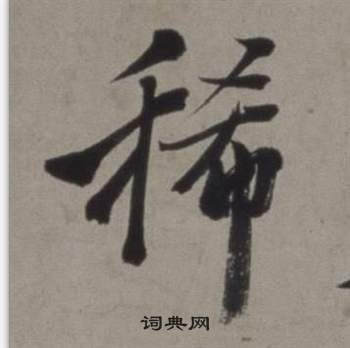 稀
词典网